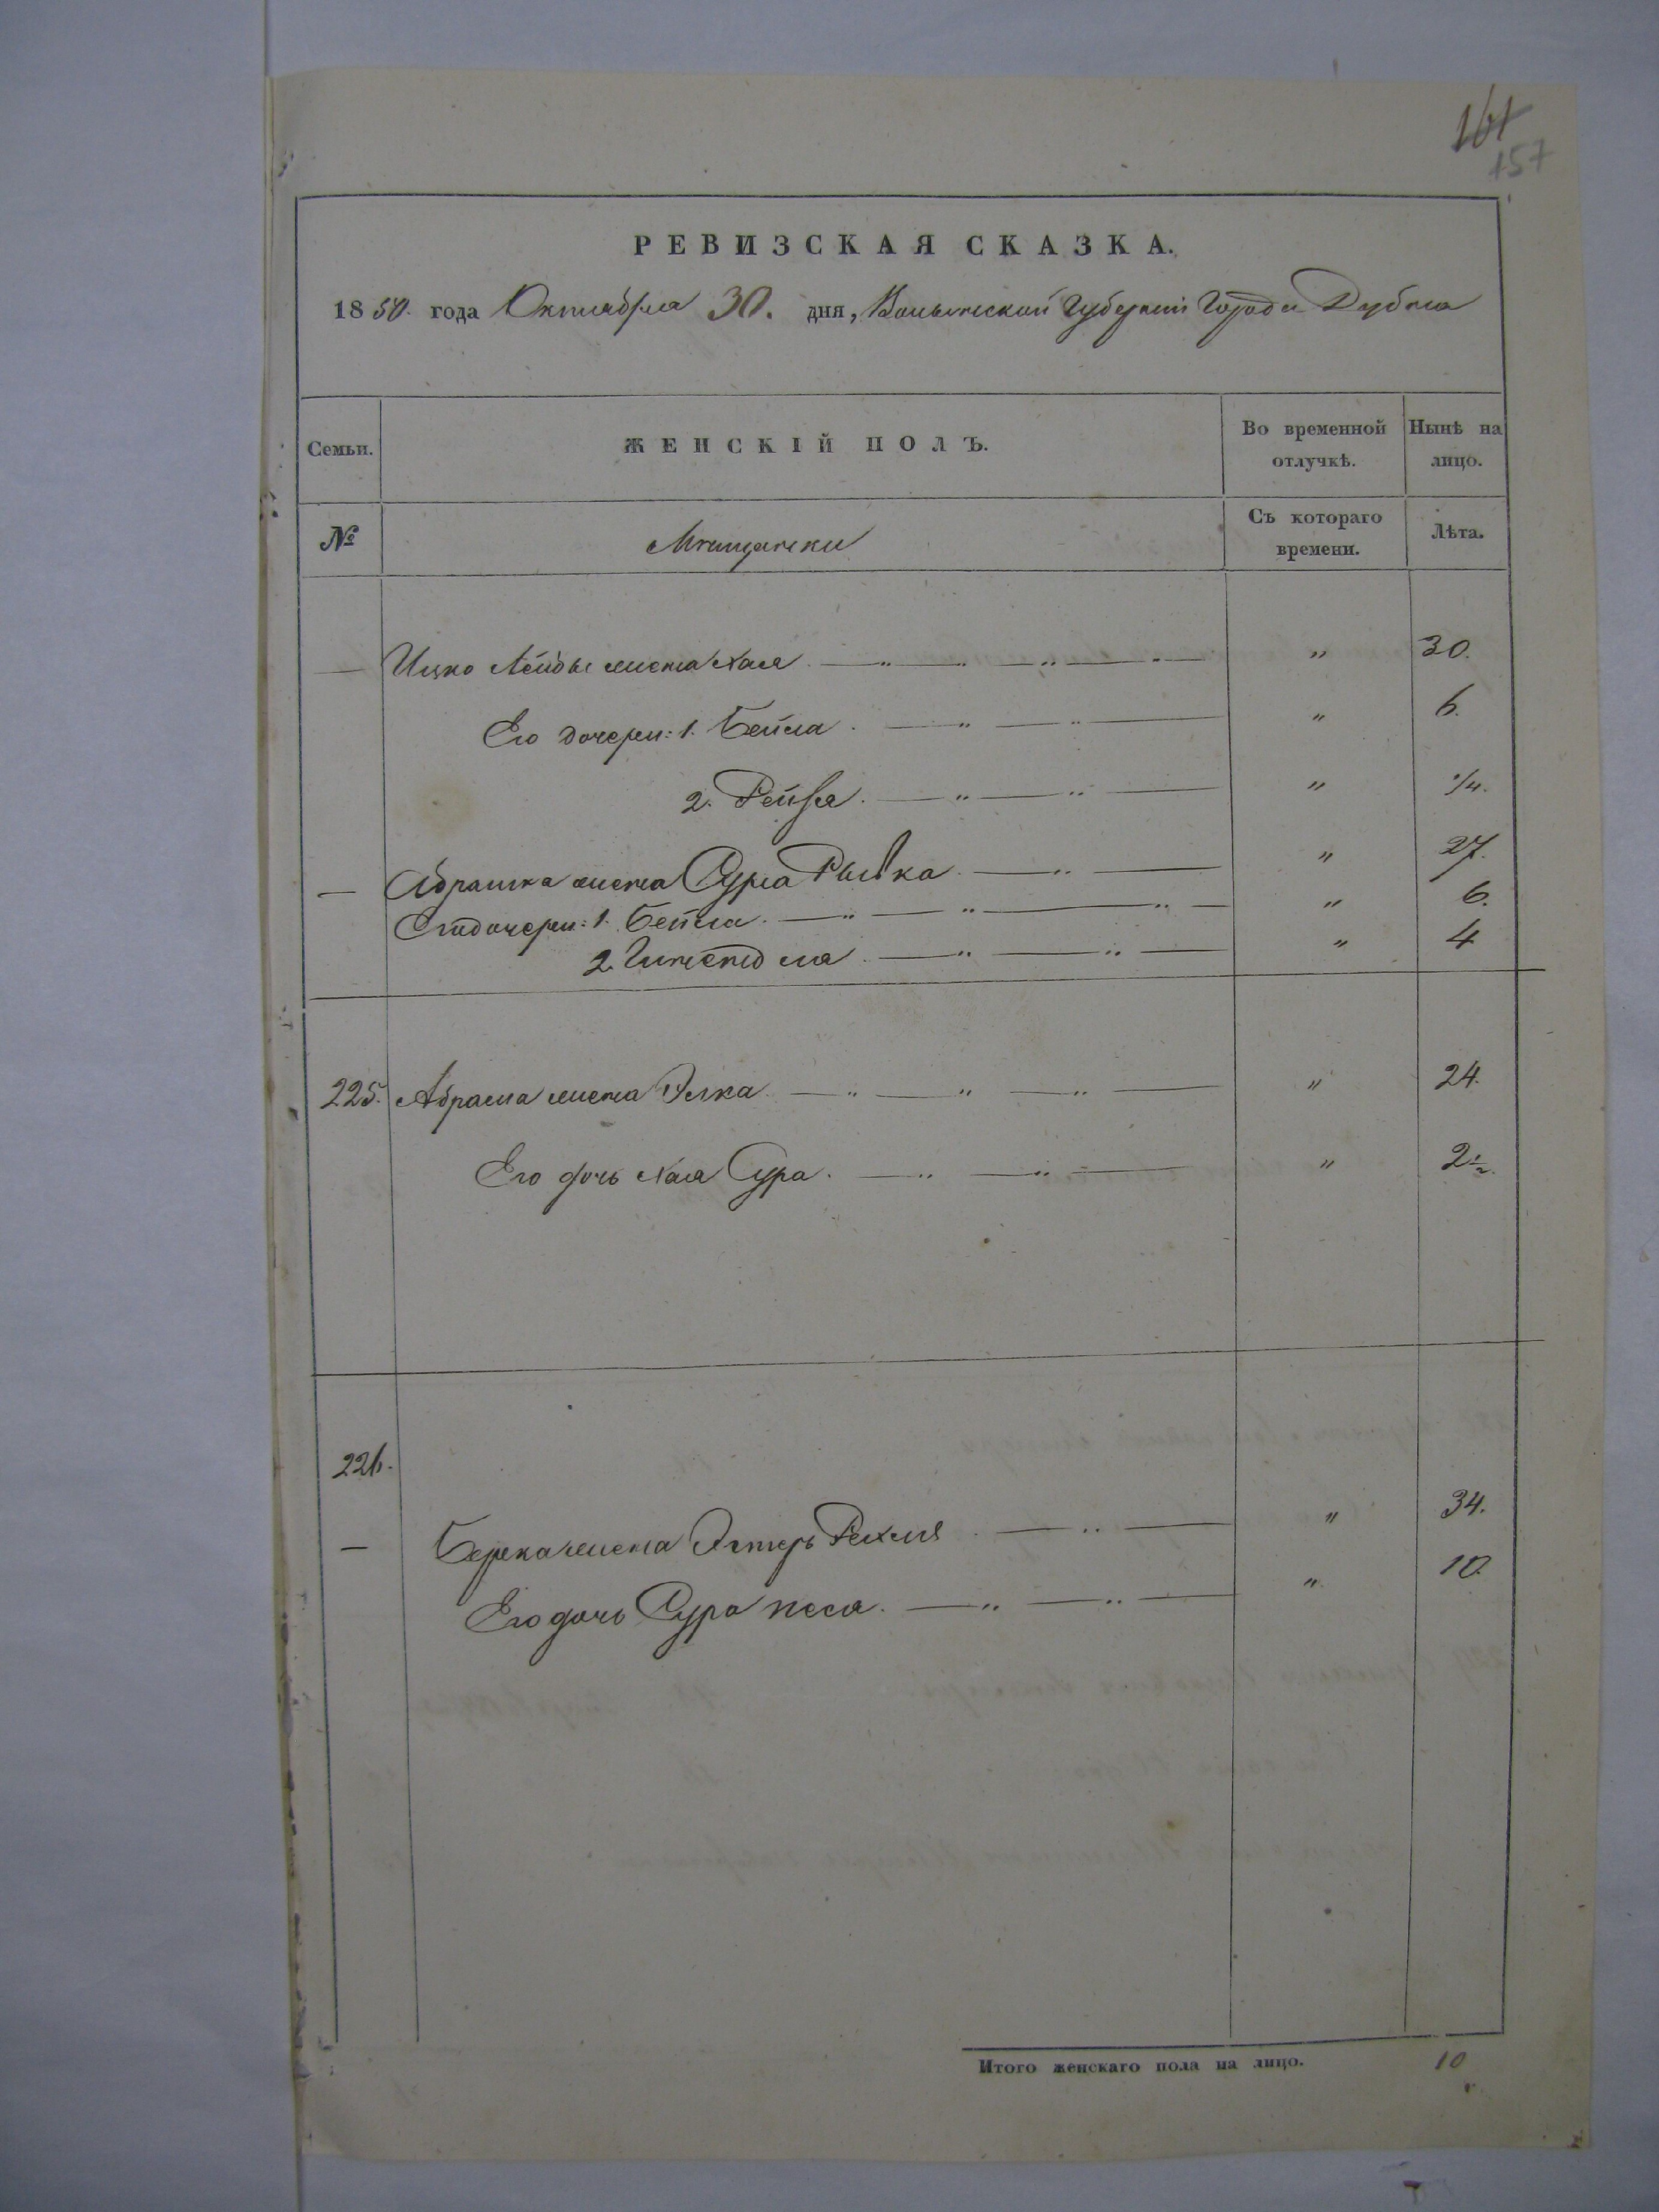 161
157
РЕВИЗСКАЯ СКАЗКА.
1850. года Октября 30. дня, Волынской Губерніи Города Дубна
Семьи. ЖЕНСКІЙ ПОЛЪ. Во временной отлучкѣ. Нынѣ на лицо.
№ Мещански Съ котораго времени. Лѣта.
— Ицко Лейбы жена Хая — „ — „ — „ — „ 30.
Его дочери: 1. Бейла — „ — „ — „ 6.
2. Рейзя — „ — „ — „ 1/4.
— Абрамка жена Сура Рывка — „ — „ 27.
Его дочери: 1. Бейла — „ — „ — „ — „ 6.
2. — „ — „ — „ 4
225. Абрама жена Элка — „ — „ — „ — „ 24.
Его дочь Хая Сура — „ — „ — „ 2 1/2.
226.
— Берка жена Эстеръ Рехля — „ — „ 34.
Его дочь Сура Песя — „ — „ — „ 10.
Итого женскаго пола на лицо. 10